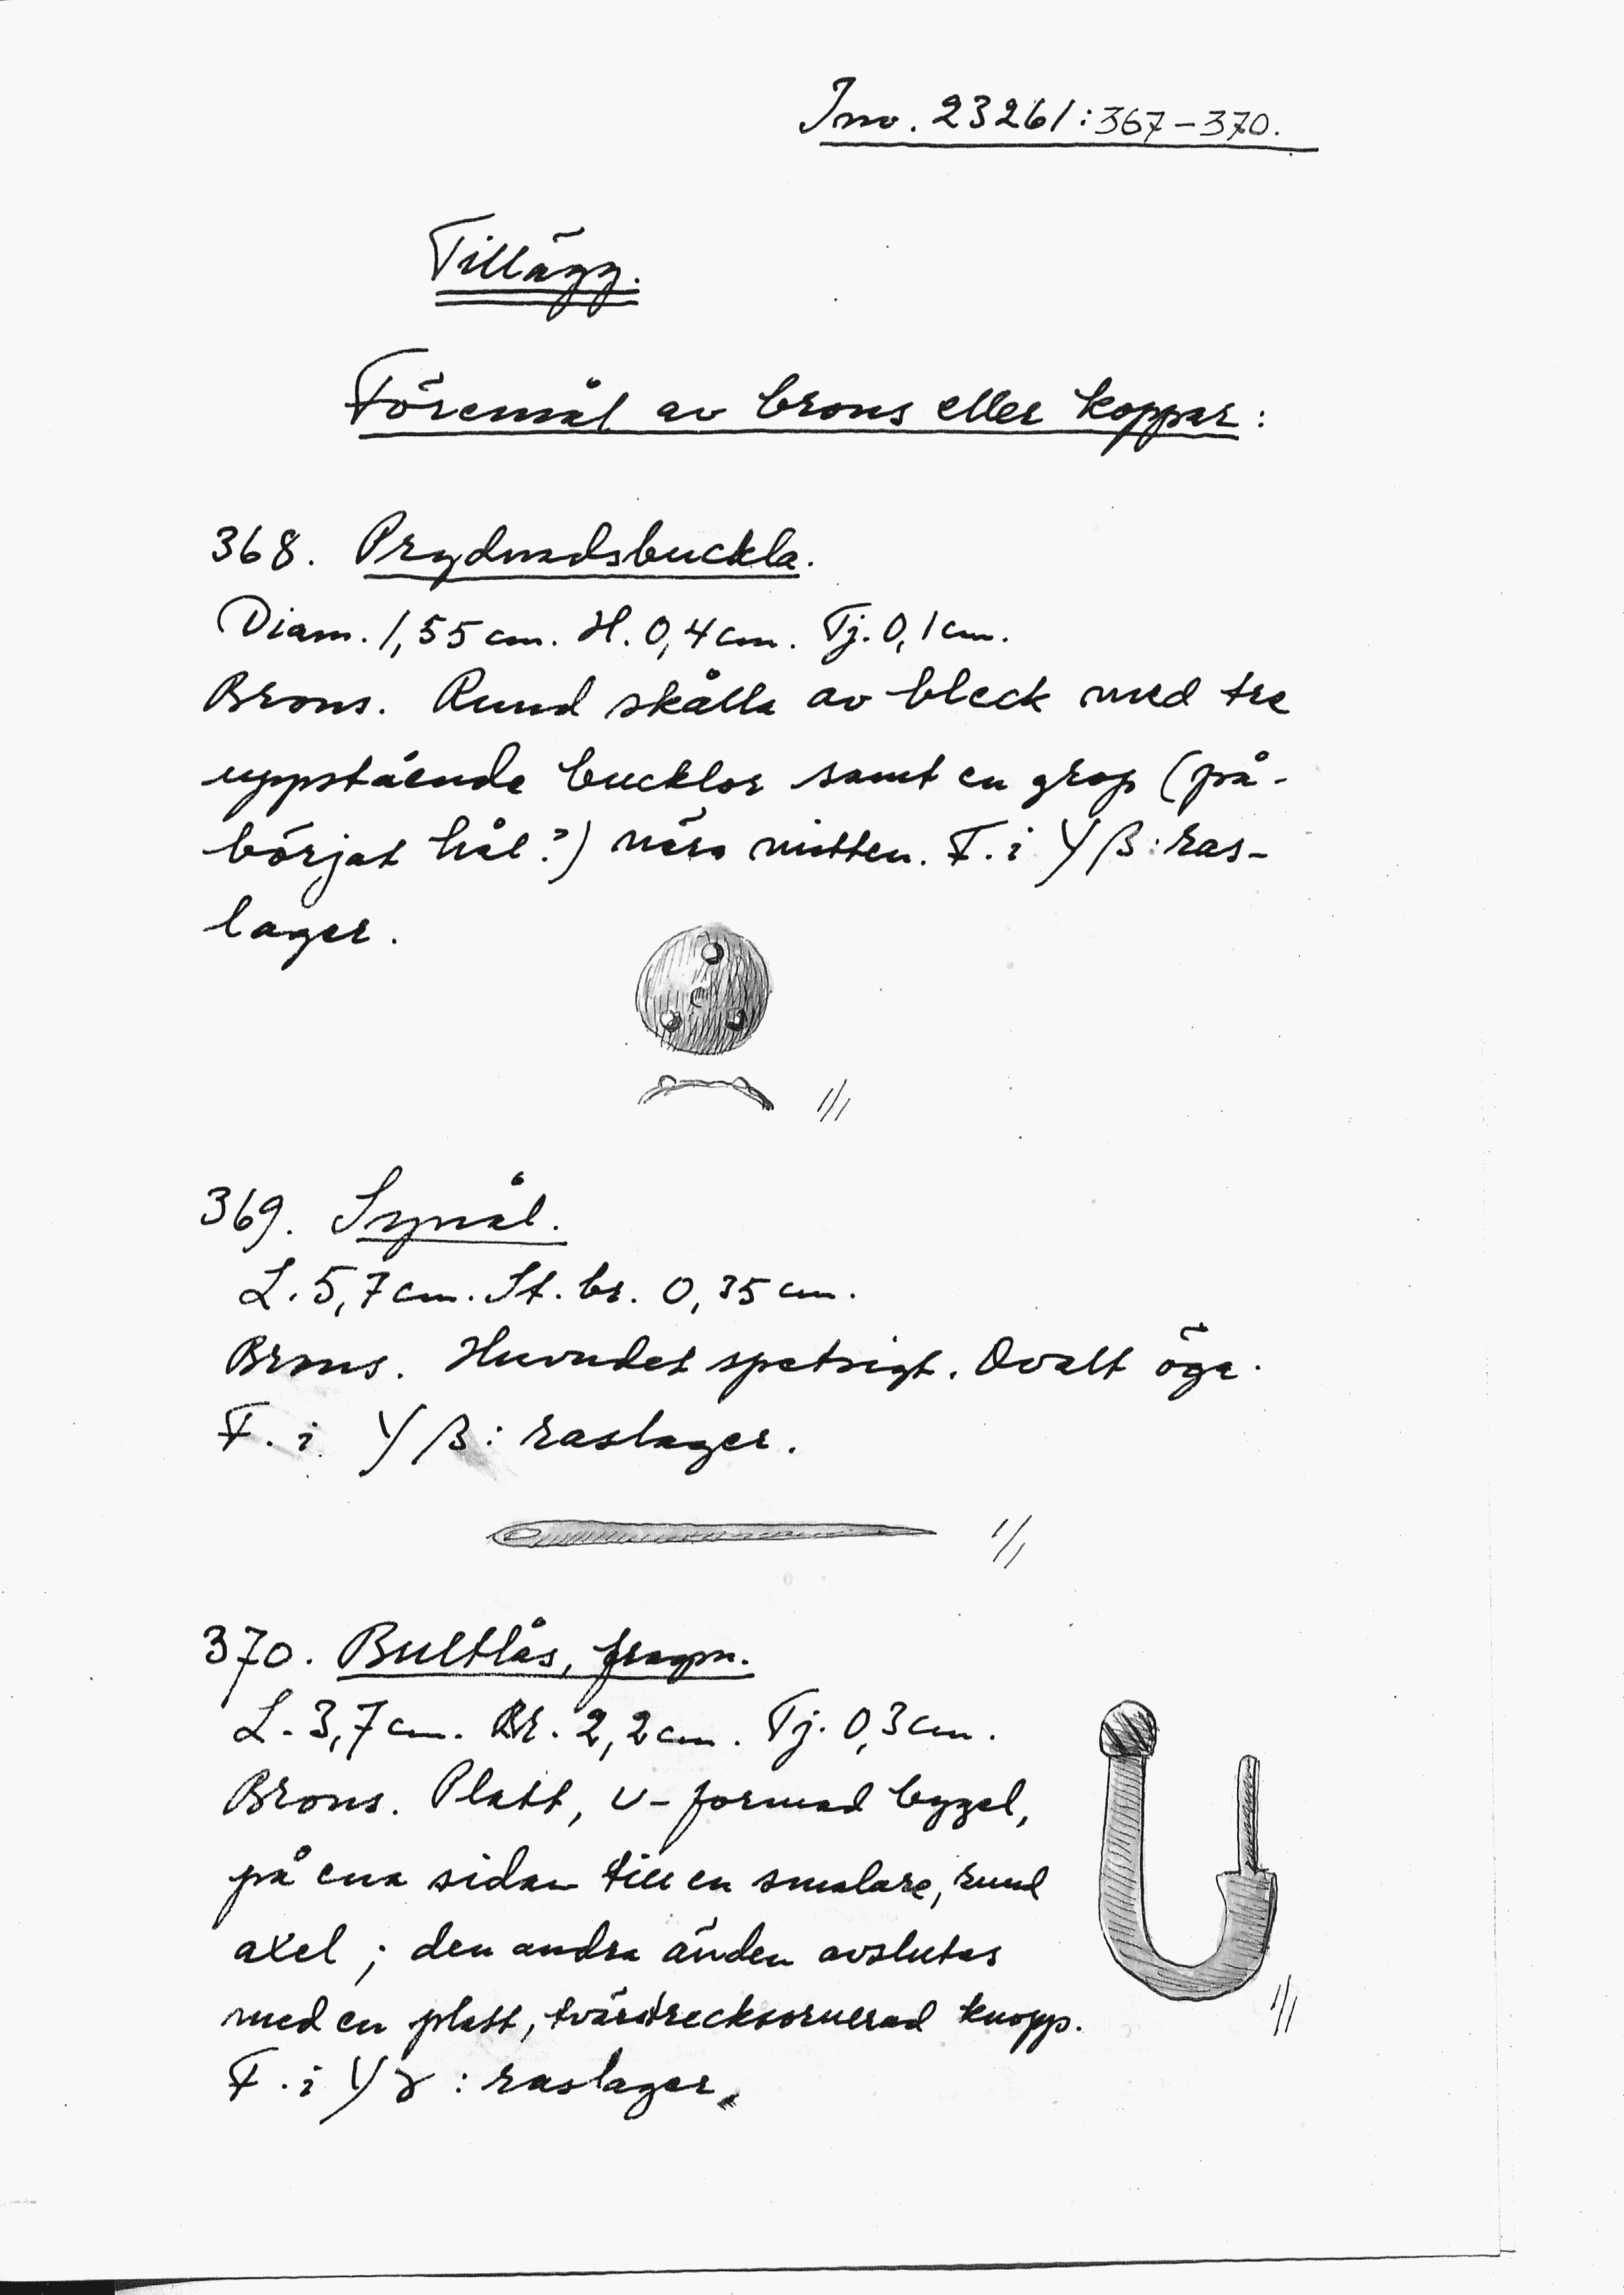 Inv. 23261:367-370.
Tillägg.
Föremål av brons eller koppar:
368. Prydnadsbuckla.
Diam. 1,55 cm. H. 0,4 cm. Tj. 0,1 cm.
Brons. Rund skålla av bleck med tre
uppstående bucklor samt en grop (på-
börjat hål?) nära mitten. F. i Y β: ras-
lager.
1/1
369. Synål.
L. 5,7 cm. St. br. 0,35 cm.
Brons. Huvudet spetsigt. Ovalt öga.
F. i Y β: raslager.
1/1
370. Bultlås, fragm.
L. 3,7 cm. Br. 2,2 cm. Tj. 0,3 cm.
Brons. Platt, U-formad bygel,
på ena sidan till en smalare, rund
axel; den andra änden avslutas
med en platt, tvärstrecksornerad knopp.
1/1
F. i Y γ: raslager.